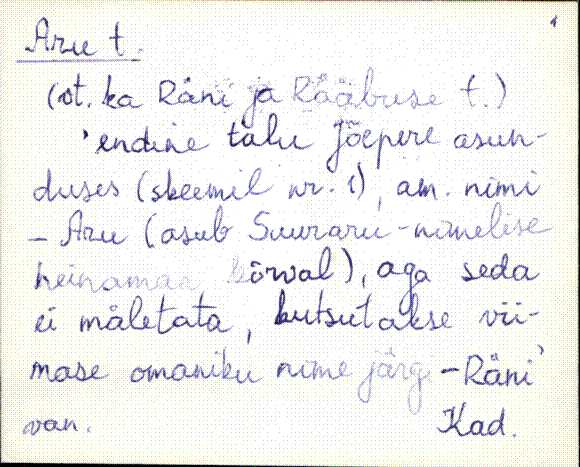 Aru t.
(vt. ka Räni ja Rääbuse t.)
'endine talu Jõepere asun-
duses (skeemil nr. 1), am. nimi
- Aru (asub Suuraru-nimelise
heinamaa kõrval), aga seda
ei mäletata, kutsutakse vii-
mase omaniku nime järgi - Räni'
van. Kad.